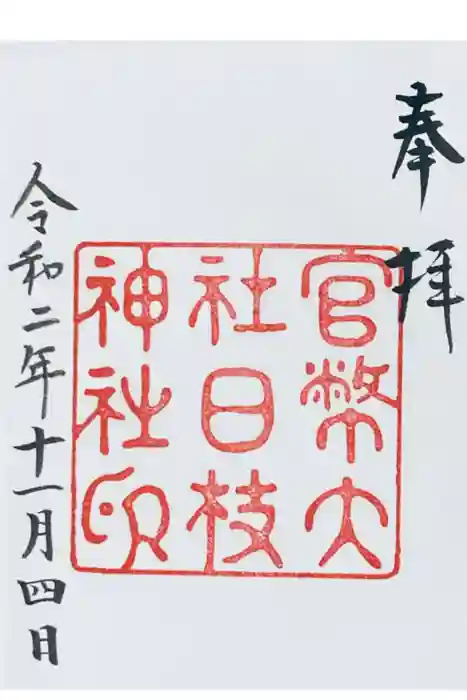 奉拝
官幣大
社日枝
神社印
令和二年十一月四日